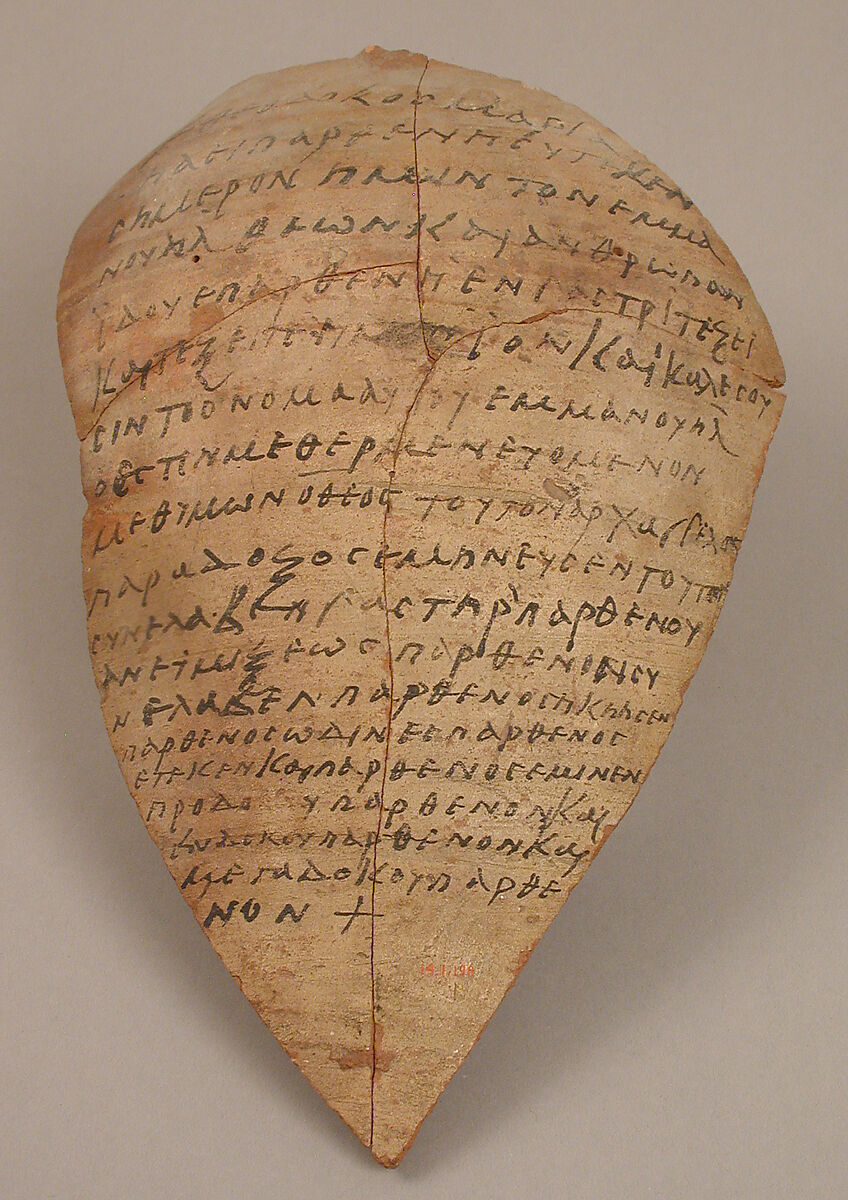 ΚΟΣ ΜΑΡΙΑ
ΠΑΡΘΕΝΗ ΕΥΤΕΚΕΝ
ΣΗΜΕΡΟΝ ΠΜΩΝ ΤΟΝ ΕΜΜΑ
ΝΟΥΗΛ ΘΕΩΝ ΚΑΙ ΑΝΘΡΩΠΩΝ
ΪΔΟΥ Ε ΠΑΡΘΕΝΗ ΕΝ ΓΑΣΤΡΙ ΤΕΞΕΙ
ΚΑΙ ΤΕΞΕΤΕ ΙΟΝ ΚΑΙ ΚΑΛΕΣΟΥ
ΣΙΝ ΤΟ ΟΝΟΜΑ ΑΥΤΟΥ ΕΜΜΑΝΟΥΗΛ
Ο ΕΣΤΙΝ ΜΕΘΕΡΜΕΝΕΥΟΜΕΝΟΝ
ΜΕΘ ΥΜΩΝ Ο ΘΕΟΣ ΤΟΥΤΟΝ ΑΡΧΑΓΓΕΛΟΣ
ΠΑΡΑΔΟΞΟΣ ΕΜΠΝΕΥΣΕΝ ΤΟΥΤΟΝ
ΣΥΝΕΛΑΒΕΝ ΓΑΣΤΗΡ ΠΑΡΘΕΝΟΥ
ΑΝΕΥ ΜΙΞΕΩΣ ΠΑΡΘΕΝΟΝ ΣΥ
ΝΕΛΑΒΕΝ ΠΑΡΘΕΝΟΣ ΗΚΗΗΣΕΝ
ΠΑΡΘΕΝΟΣ ΩΔΙΝΕΕ ΠΑΡΘΕΝΟΣ
ΕΤΕΚΕΝ ΚΑΙ ΠΑΡΘΕΝΟΣ ΕΜΙΝΕΝ
ΠΡΟ ΔΟ Υ ΠΑΡΘΕΝΟΝ ΚΑΙ
ΠΑΡΘΕΝΟΝ ΚΑΙ
ΜΕΤΑ ΔΟΚΟΥ ΠΑΡΘΕ
ΝΟΝ +
19.1.198